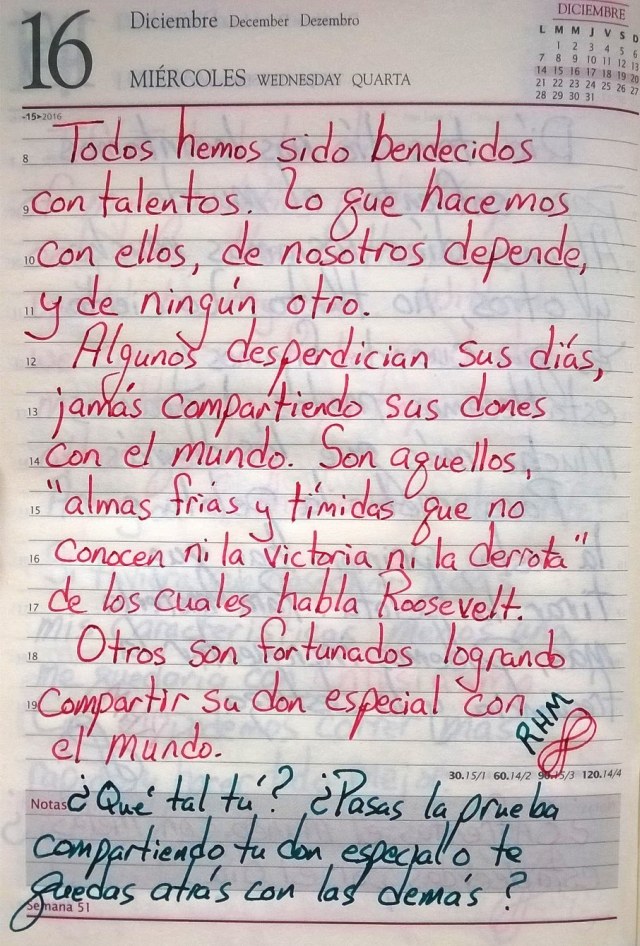 16
Diciembre December Dezembro
MIÉRCOLES WEDNESDAY QUARTA
DICIEMBRE
L M M J V S D
1 2 3 4 5 6
7 8 9 10 11 12 13
14 15 16 17 18 19 20
21 22 23 24 25 26 27
28 29 30 31
-15▸2016
8 Todos hemos sido bendecidos
9 con talentos. Lo que hacemos
10 con ellos, de nosotros depende,
11 y de ningún otro.
12 Algunos desperdician sus días,
13 jamás compartiendo sus dones
14 con el mundo. Son aquellos,
15 "almas frías y tímidas que no
16 conocen ni la victoria ni la derrota"
17 de los cuales habla Roosevelt.
18 Otros son fortunados logrando
19 compartir su don especial con
el mundo.
RHM
30.15/1 60.14/2 90.15/3 120.14/4
Notas ¿Qué tal tú? ¿Pasas la prueba
compartiendo tu don especial o te
quedas atrás con las demás?
Semana 51